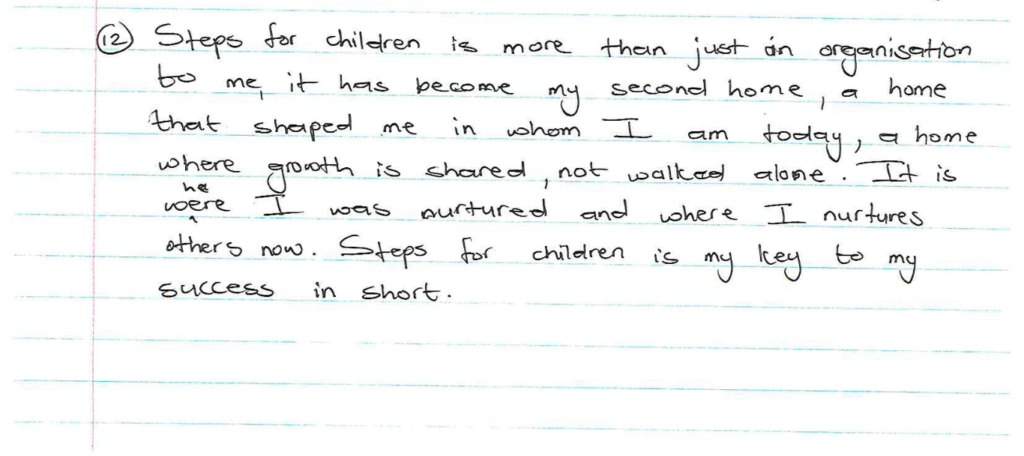 (12) Steps for children is more than just an organisation
to me, it has become my second home, a home
that shaped me in whom I am today, a home
where growth is shared, not walked alone. It is
he
were I was nurtured and where I nurtures
others now. Steps for children is my key to my
success in short.